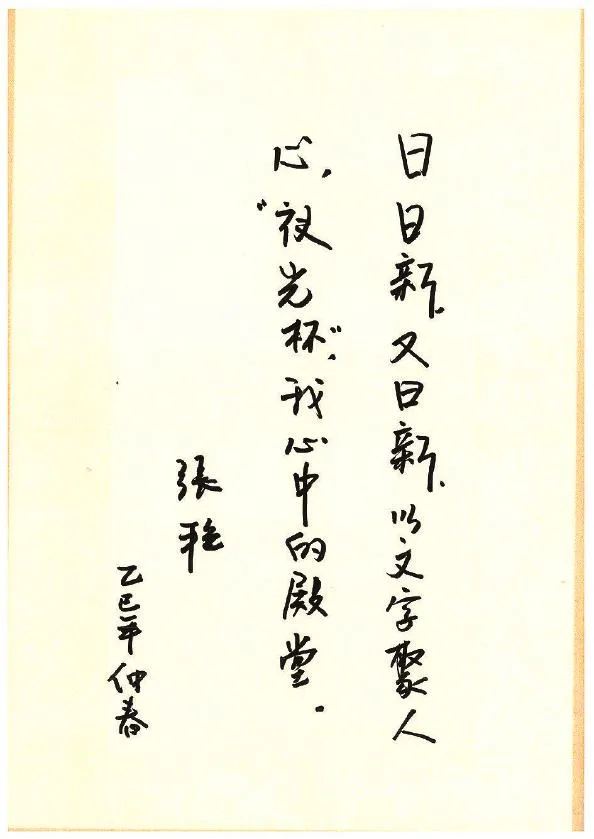 日日新，又日新，以文字聚人
心，“夜光杯”，我心中的殿堂．
張
乙巳年仲春